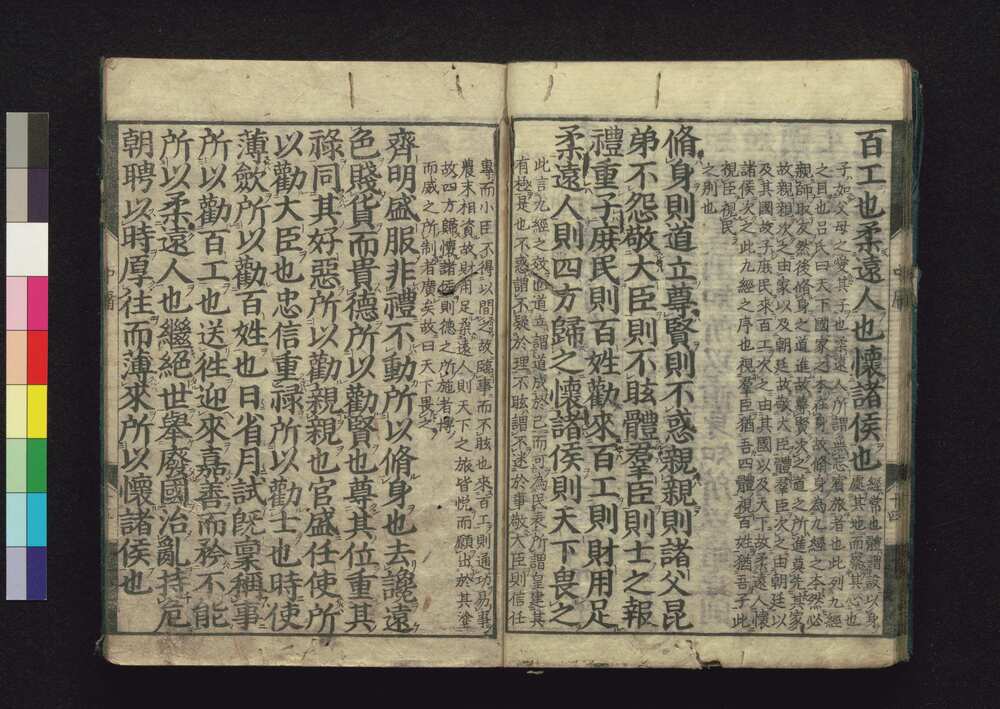 百工也柔遠人也懷諸侯也
經常也體謂設以身
處其地而察其心也
子如父母之愛其子也柔遠人所謂無忘賓旅者也此列九經
之目也呂氏曰天下國家之本在身故脩身為九經之本然必
親師取友然後脩身之道進故尊賢次之道之所進莫先其家
故親親次之由家以及朝廷故敬大臣體羣臣次之由朝廷以
及其國故子庶民來百工次之由其國以及天下故柔遠人懷
諸侯次之此九經之序也視羣臣猶吾四體視百姓猶吾子此
視臣視民
之別也
脩身則道立尊賢則不惑親親則諸父昆
弟不怨敬大臣則不眩體羣臣則士之報
禮重子庶民則百姓勸來百工則財用足
柔遠人則四方歸之懷諸侯則天下畏之
此言九經之效也道立謂道成於己而可為民表所謂皇建其
有極是也不惑謂不疑於理不眩謂不迷於事敬大臣則信任
專而小臣不得以間之故臨事而不眩也來百工則通功易事
農末相資故財用足柔遠人則天下之旅皆悅而願出於其塗
故四方歸懷諸侯則德之所施者博
而威之所制者廣矣故曰天下畏之
齊明盛服非禮不動所以脩身也去讒遠
色賤貨而貴德所以勸賢也尊其位重其
祿同其好惡所以勸親親也官盛任使所
以勸大臣也忠信重祿所以勸士也時使
薄斂所以勸百姓也日省月試既稟稱事
所以勸百工也送往迎來嘉善而矜不能
所以柔遠人也繼絕世舉廢國治亂持危
朝聘以時厚往而薄來所以懷諸侯也